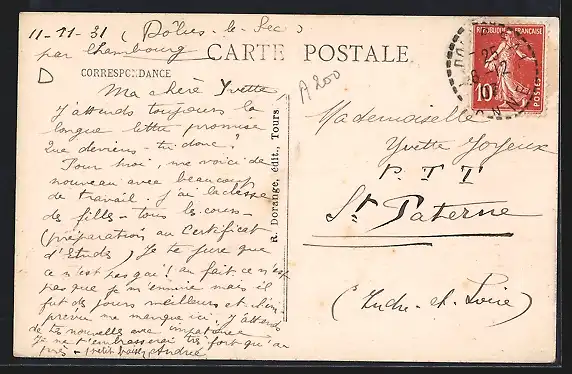 11-11-31 (Dolus-le-Sec)
par Chambourg
CARTE POSTALE
CORRESPONDANCE
D
Ma chère Yvette,
J'attends toujours la
longue lettre promise
Que deviens-tu donc?
Pour moi, me voici de
nouveau avec beaucoup
de travail. J'ai la classe
des filles - tous les cours -
(préparation au Certificat
d'Etudes) Je te jure que
ce n'est pas gai! au fait ce n'est
pas que je m'ennuie mais il
fut des jours meilleurs et
me manque ici. J'attends
de tes nouvelles avec impatience
Je ne t'embrasserai très fort qu'
André
R. Dorange, édit., Tours
A 200
RÉPUBLIQUE FRANÇAISE
10
POSTES
Mademoiselle
Yvette Joyeux
P. T T
St Paterne
(Indre-et-Loire)